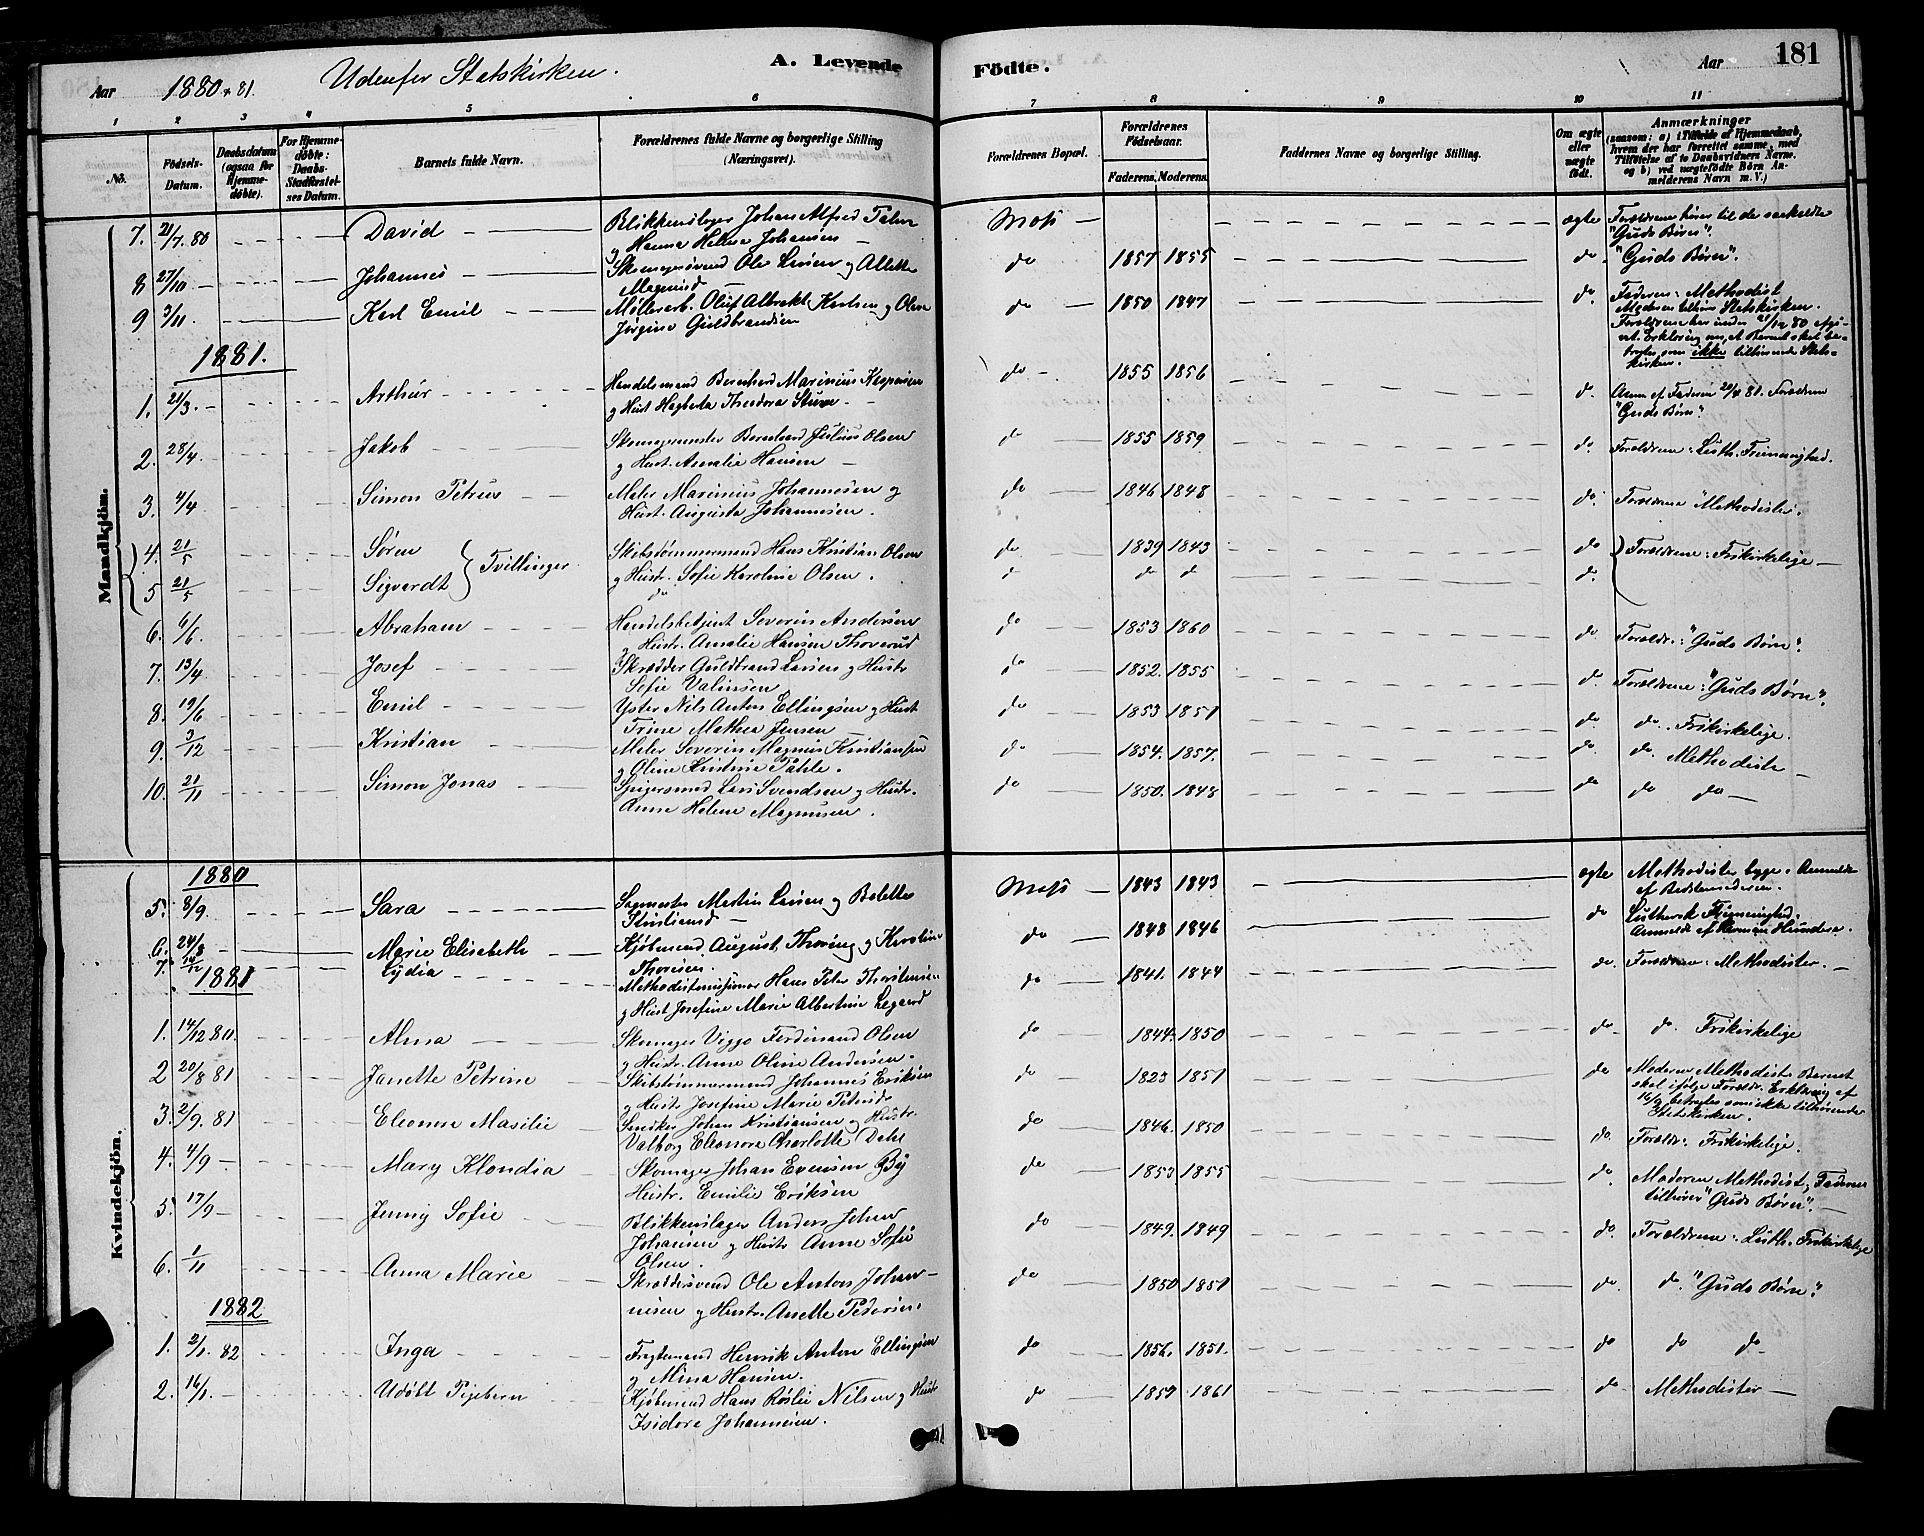 Aar 1880 & 81. Udenfor Statskirken. A. Levende Födte. Aar 181
1 2 3 4 5 6 7 8 9 10 11
No. Födsels-Datum. Daabsdatum (ogsaa for Hjemmedöbte). For Hjemmedöbte: Daabs-Stadfæstelses Datum. Barnets fulde Navn. Forældrenes fulde Navne og borgerlige Stilling (Næringsvei). Forældrenes Bopæl. Forældrenes Födselsaar. Faderens. Moderens. Faddernes Navne og borgerlige Stilling. Om ægte eller uægte födt. Anmærkninger (saasom: a) i Tilfælde af Hjemmedaab, hvem der har forrettet samme, med Tilföielse af to Daabsvidners Navne, og b) ved uægtefödte Börn Anmelderens Navn m. V.)
Mandkjön.
7. 21/7. 80 David Blikkenslager Johan Alfred
og Hanna Helene Johansen Moss ægte Forældrene hører til de saakaldte
"Guds Børn".
8 27/10 Johannes Skomagersvend Ole Larsen og Alette
Magnusd do 1857 1855 do. "Guds Børn".
9 3/11 Karl Emil Møllerarb. Oluf Albrekt Karlsen og Oline
Jørgine Guldbrandsen do 1850 1847 do. Faderen: Methodist
Moderen tilhører Statskirken.
Forældrene har under 21/12 80 afgivet Erklæring om, at Barnet skal betragtes som ikke tilhørende Statskirken.
1881.
1. 21/3. Arthur Handelsmand Bernhard Marinius Kaspersen
og Hust Hagberta Theodora do 1855 1856 d. Anm. af Faderen 20/4 81. Forældrene
"Guds Børn".
2. 28/4. Jakob Skomagermester Bernhard Julius Olsen
og Hust. Amalie Hansen do 1855 1859 do. Forældrene: Luth. Frimenighed.
3. 4/4 Simon Petrus Maler Marinius Johannesen og
Hust. Augusta Johannesen. do 1846 1848 do. Forældrene Methodister.
4. 21/5 Søren Tvillinger Skibstømmermand Hans Kristian Olsen do 1839 1843 do Forældrene: Frikirkelige
5 21/5 Sigvardt og Hustr. Sofie Karoline Olsen. do do do do.
6. 6/6. Abraham Handelsbetjent Severin Andersen
og Hustr. Amalie Hansen Thoverud do 1853 1860 do Forældr.: "Guds Børn".
7. 13/4 Josef Skrædder Guldbrand Larsen og Hustr
Sofie do 1852. 1855 d. Forældrene: "Guds Børn".
8. 19/6 Emil Nils Anton Ellingsen og Hust
Trine Mathea Jensen do 1853 1851 do do. Frikirkelige.
9. 3/12 Kristian Maler Severin Magnus Kristiansen
og Oline Kristine do 1854. 1857. do do Methodister
10. 21/11 Simon Jonas Lars Svendsen og Hustr.
Anne Helene Magnusen. do 1850. 1848 do do do
Kvindekjön.
1880
5. 8/9. Sara Sagmester Martin Larsen og Bolette
Moss 1843 1843 ægte Methodister begge. Anmeldt
af Bedstemoderen.
6. 24/8 Marie Elisabeth Kjøbmand August Thoring og Karoline
do 1848 1846 do Luthersk Frimenighed.
7. Lydia Methodistmissionær Hans Peter
og Hust Josefine Marie Albertine do 1841. 1844 do. Forældrene: Methodister.
1881
1. 14/12 80. Alma Skomager Viggo Ferdinand Olsen
og Hustr. Anne Oline Andersen. do 1844. 1850 do do. Frikirkelige
2 20/8 81 Janette Petrine Skibstømmermand Johannes Eriksen
og Hust. Josefine Marie do 1823 1851 do Moderen Methodist. Barnet
skal ifølge Forældr. Erklæring af
16/9 betragtes som ikke tilhørende
Statskirken.
3. 2/9. 81 Eleonore Masilie Snedker Johan Kristiansen og Hustr.
Valborg Eleonora Charlotte Dahl do 1846. 1850 do. Forældr: Frikirkelige.
4. 4/9 Mary Klondia Skomager Johan Evensen By
Hustr. Emilie Eriksen do 1853 1855 do. Moderen Methodist, Faderen
tilhører "Guds Børn".
5. 17/9 Jenny Sofie Blikkenslager Anders Johan
Johansen og Hustr Anne Sofie
Olsen. do 1849. 1849 do. Forældrene: Luth. Frikirkelige
6. 1/11 Anna Marie Skræddersvend Ole Anton Johannesen og Hustr. Anette Pedersen. do 1850 1851 do do. "Guds Børn".
1882
1. 2/1. 82 Inga Fragtemand Henrik Anton Ellingsen
og Mina Hansen. do 1856. 1851. do do do
2. 16/1. Udøbt Pigebarn Kjøbmand Hans Nilsen og Hustr
Isidore Johannesen. do 1857 1861 do Methodister